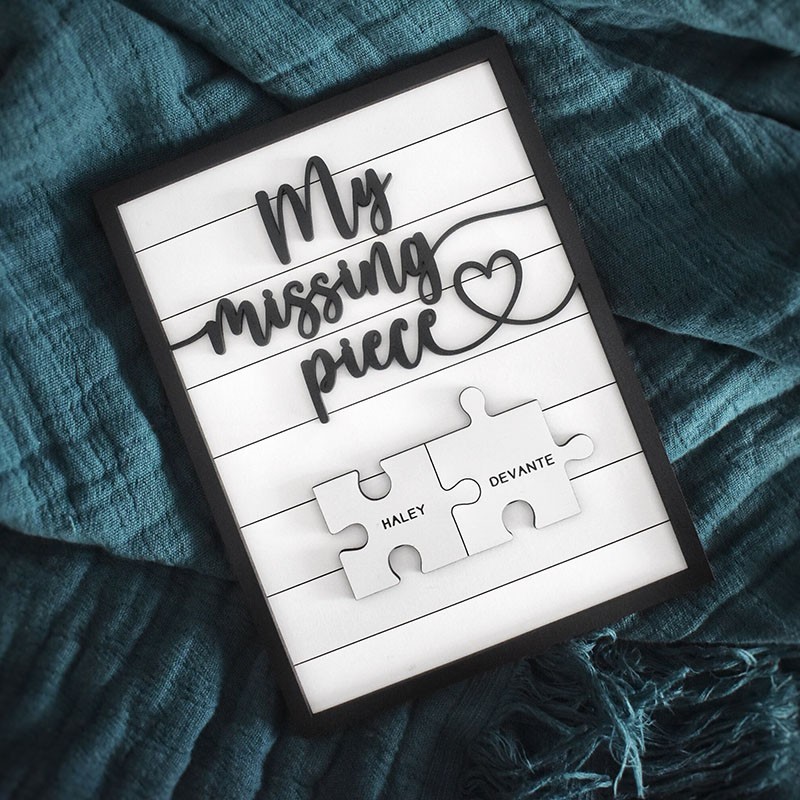 My
missing
piece
HALEY
DEVANTE